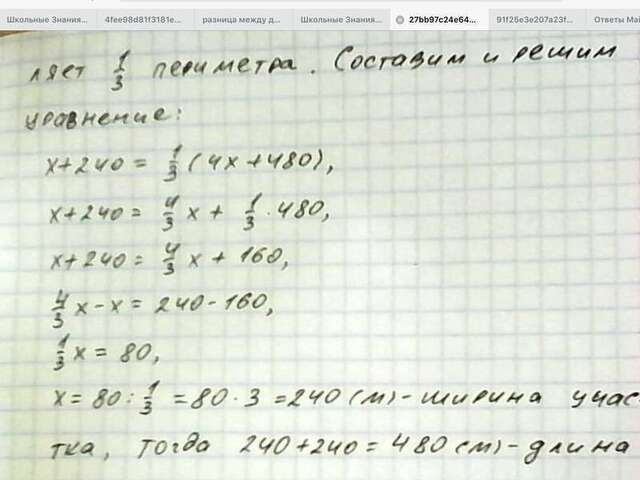 Школьные Знания... 4fee98d81f3181e... разница между д... Школьные Знания... 27bb97c24e64... 91f26e3e207a23f... Ответы Mai
ляет 1/3 периметра. Составим и решим
уравнение:
x+240 = 1/3 (4x+480),
x+240 = 4/3 x + 1/3 · 480,
x+240 = 4/3 x + 160,
4/3 x - x = 240 - 160,
1/3 x = 80,
x = 80 : 1/3 = 80 · 3 = 240 (м) - ширина учас
тка, тогда 240+240 = 480 (м) - длина